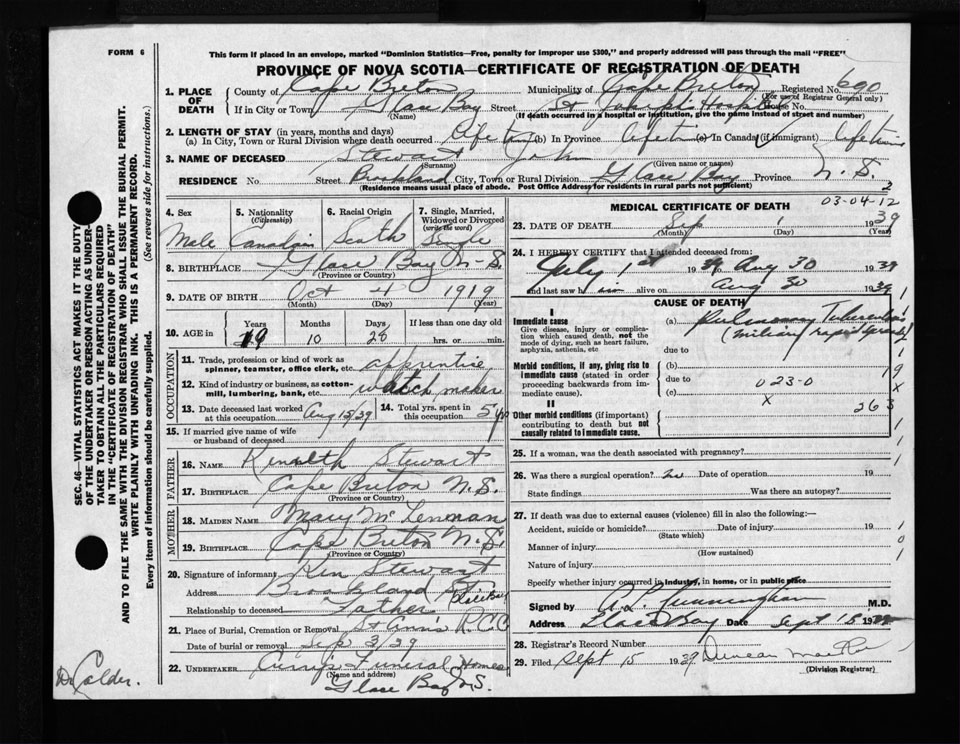 FORM 6
This form if placed in an envelope, marked "Dominion Statistics—Free, penalty for improper use $300," and properly addressed will pass through the mail "FREE"
PROVINCE OF NOVA SCOTIA—CERTIFICATE OF REGISTRATION OF DEATH
SEC. 46—VITAL STATISTICS ACT MAKES IT THE DUTY
OF THE UNDERTAKER OR PERSON ACTING AS UNDER-
TAKER TO OBTAIN ALL THE PARTICULARS REQUIRED
IN THE "CERTIFICATE OF REGISTRATION OF DEATH"
AND TO FILE THE SAME WITH THE DIVISION REGISTRAR WHO SHALL ISSUE THE BURIAL PERMIT.
WRITE PLAINLY WITH UNFADING INK. THIS IS A PERMANENT RECORD.
Every item of information should be carefully supplied. (See reverse side for instructions.)
1. PLACE OF DEATH County of Cape Breton Municipality of Cape Breton Registered No. 690
(For use of Registrar General only)
If in City or Town Glace Bay Street St Joseph Hospital House No.
(Name) (If death occurred in a hospital or institution, give the name instead of street and number)
2. LENGTH OF STAY (in years, months and days)
(a) In City, Town or Rural Division where death occurred Lifetime (b) In Province Lifetime (c) In Canada (if immigrant) Lifetime
3. NAME OF DECEASED Stewart John
(Surname) (Given name or names)
RESIDENCE No. Street Brookland City, Town or Rural Division Glace Bay Province N.S.
(Residence means usual place of abode. Post Office Address for residents in rural parts not sufficient)
2
03-04-12
4. Sex 5. Nationality (Citizenship) 6. Racial Origin 7. Single, Married, Widowed or Divorced (write the word)
Male Canadian Scotch Single
8. BIRTHPLACE Glace Bay N-S.
(Province or Country)
9. DATE OF BIRTH Oct 4 1919
(Month) (Day) (Year)
10. AGE in Years Months Days If less than one day old
19 10 28 hrs. or min.
OCCUPATION
11. Trade, profession or kind of work as spinner, teamster, office clerk, etc. apprentice
12. Kind of industry or business, as cotton-mill, lumbering, bank, etc. watch maker
13. Date deceased last worked at this occupation Aug 15/39 14. Total yrs. spent in this occupation 5 yrs
15. If married give name of wife or husband of deceased
FATHER
16. NAME Kenneth Stewart
17. BIRTHPLACE Cape Breton N.S.
(Province or Country)
MOTHER
18. MAIDEN NAME Mary McLennan
19. BIRTHPLACE Cape Breton N.S.
(Province or Country)
20. Signature of informant Ken Stewart
Address Brookland St. Glace Bay
Relationship to deceased Father
21. Place of Burial, Cremation or Removal St Ann's R.C.C
Date of burial or removal Sep 3/39
22. UNDERTAKER Funeral Homes
(Name and address)
Glace Bay N.S.
Dr Calder.
MEDICAL CERTIFICATE OF DEATH
23. DATE OF DEATH Sep 1 1939
(Month) (Day) (Year)
24. I HEREBY CERTIFY that I attended deceased from:
July 1st 1939 to Aug 30 1939
and last saw him alive on Aug 30 1939
CAUSE OF DEATH
I
Immediate cause
Give disease, injury or complication which caused death, not the mode of dying, such as heart failure, asphyxia, asthenia, etc
(a) Pulmonary Tuberculosis
(miliary
due to
Morbid conditions, if any, giving rise to immediate cause (stated in order proceeding backwards from immediate cause).
(b)
due to
(c)
023-0
x
19
x
263
II
Other morbid conditions (if important) contributing to death but not causally related to immediate cause.
25. If a woman, was the death associated with pregnancy?
26. Was there a surgical operation? No Date of operation 19
State findings Was there an autopsy?
27. If death was due to external causes (violence) fill in also the following:—
Accident, suicide or homicide? Date of injury 19
(State which)
Manner of injury
(How sustained)
Nature of injury
Specify whether injury occurred in industry, in home, or in public place
Signed by A. L. Cunningham M.D.
Address Glace Bay Date Sept 15 19
28. Registrar's Record Number
29. Filed Sept 15 1939 Duncan
(Division Registrar)